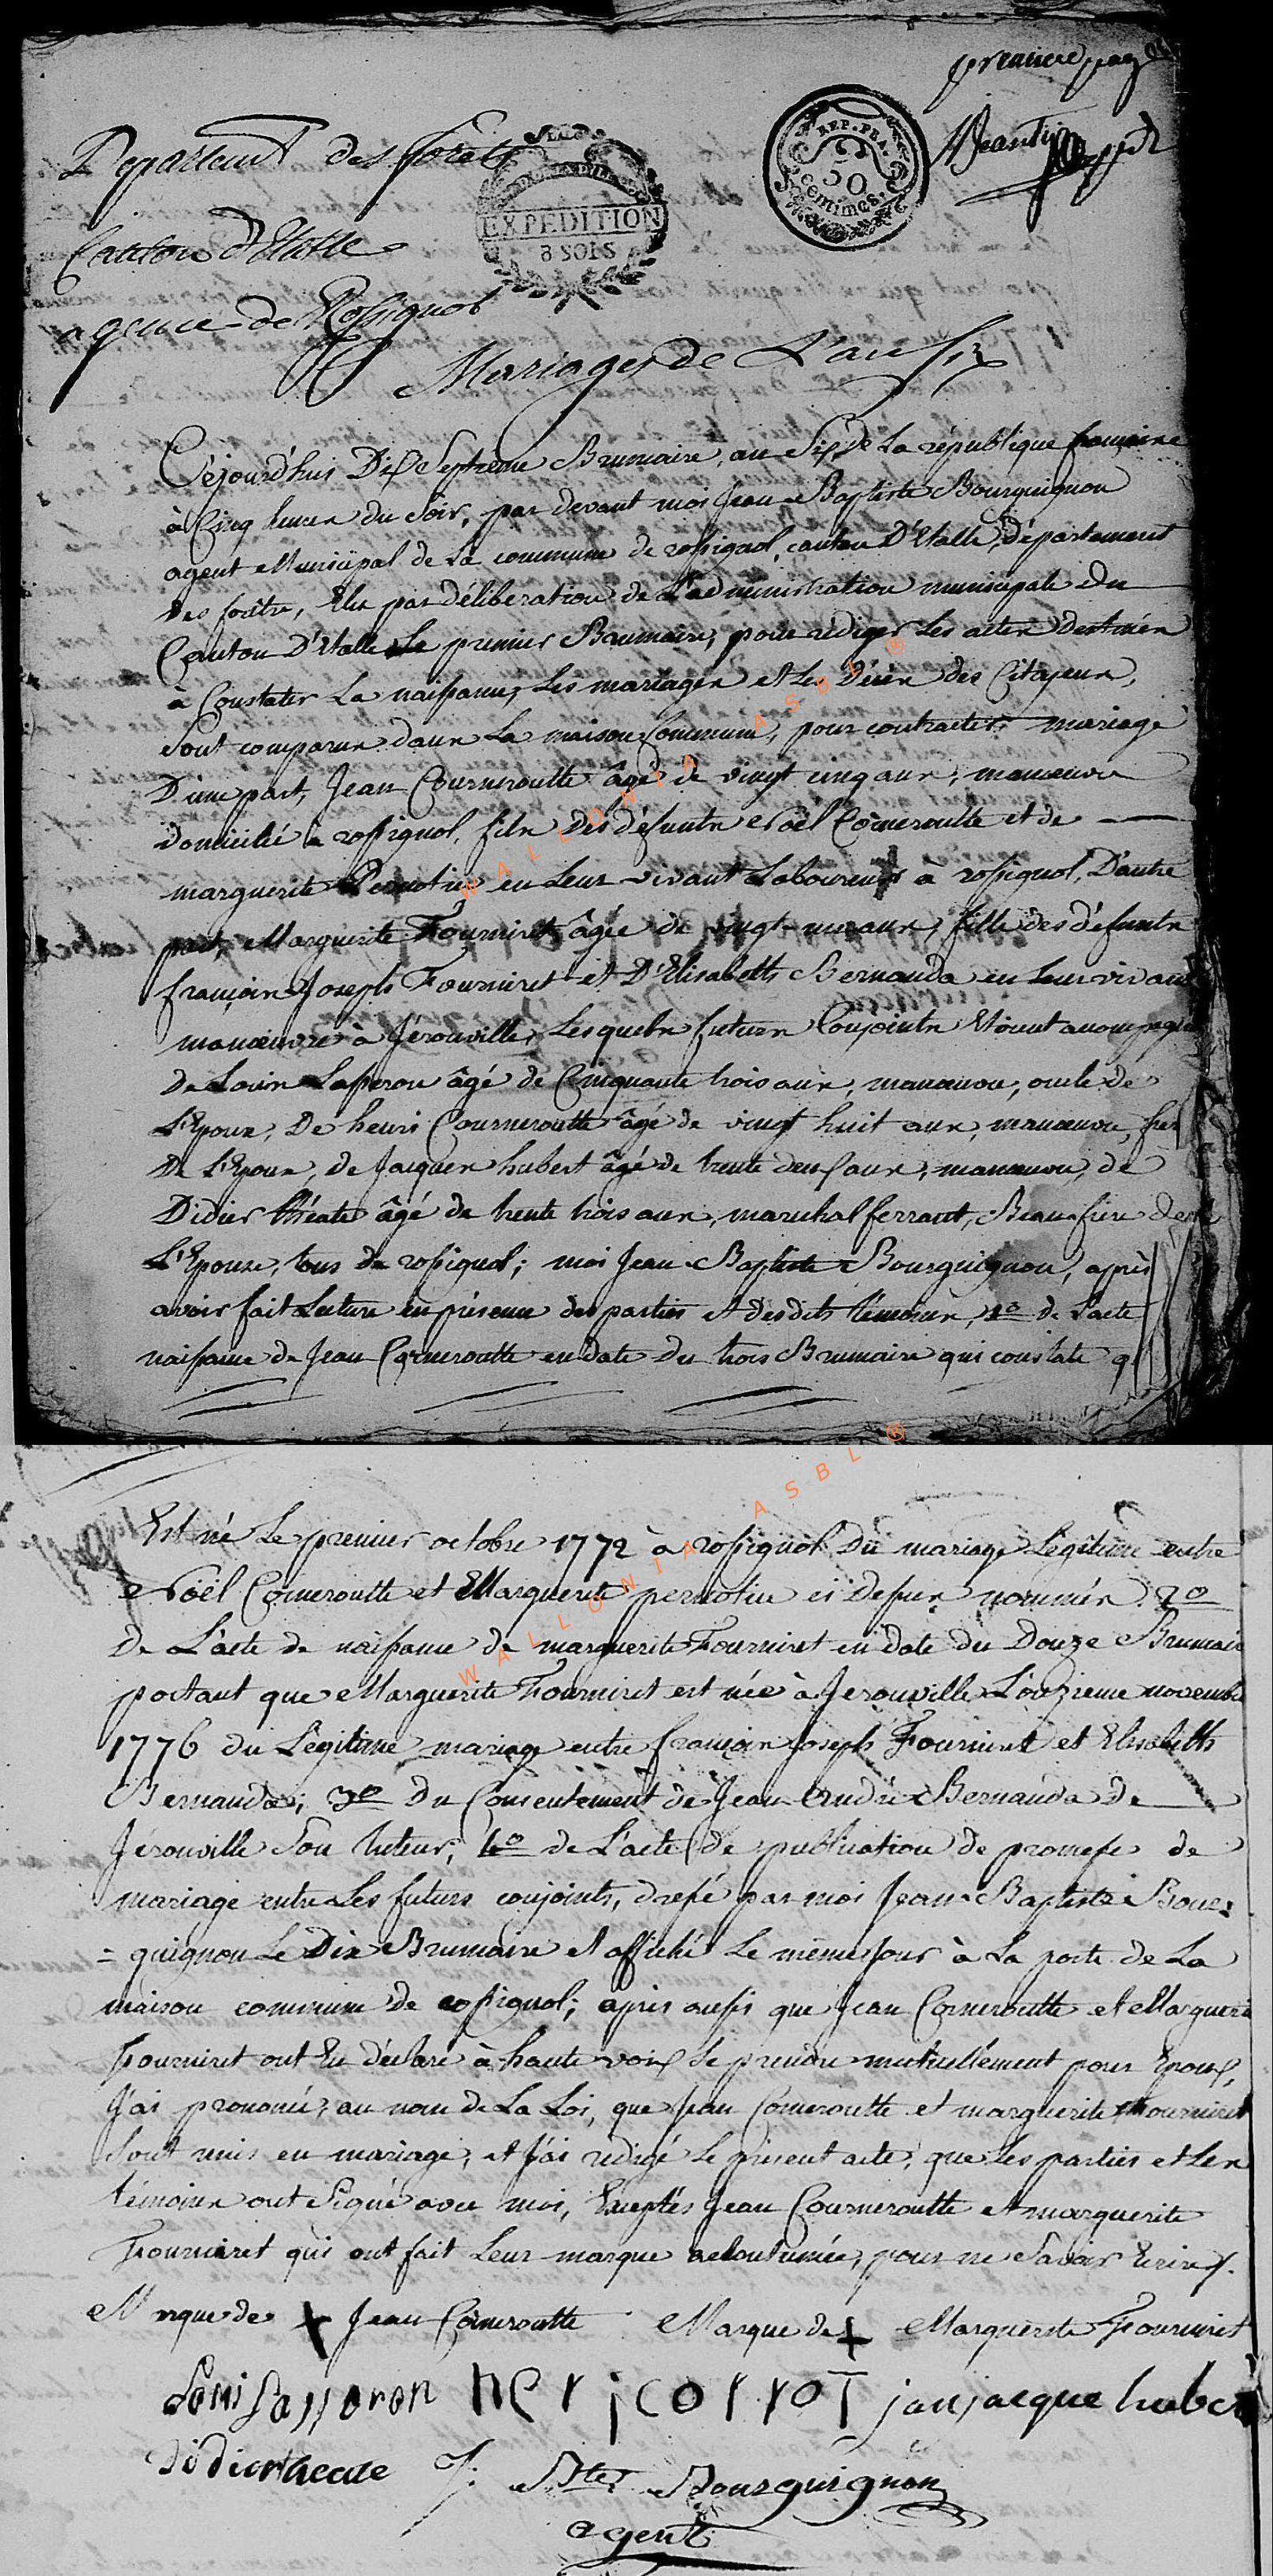 première page
Departemt des forêts
EXPEDITION
8 SOLS
REP. FRA.
50
centimes.
Canton d'Etalle
agence de Rossignol
Mariages de L'an six
Cejourd'hui Dix Septieme Brumaire, an Six de La république française
à Cinq heures du Soir, par devant moi Jean Baptiste Bourguignon
agent Municipal de La commune de rossignol, canton D'Etalle, département
Des forêts, Elu par délibération de L'administration municipale Du
Canton D'Etalle Le premier Brumaire, pour rediger Les actes Destinés
à Constater La naissance, Les mariages et Les Décès des Citoyens,
Sont comparus dans La maison Commune, pour contracter mariage
D'une part, Jean Courneroutte âgé de vingt cinq ans, manœuvre
domicilié à rossignol, fils Des défunts Noël Corneroutte et de
marguerite Pernotin en Leur vivant Laboureurs à rossignol, D'autre
part, Marguerite Fourniret âgée de vingt-un ans, fille des défunts
françois Joseph Fourniret et D'Elisabeth Bernanda en Leur vivant
manœuvre à Jérouville, Lesquels futurs Conjoints Etoient accompagnés
de Louis Lasperon âgé de Cinquante trois ans, manœuvre, oncle de
L'Epoux, De henri Courneroutte âgé de vingt huit ans, manœuvre, frere
De L'Epoux, de Jacques hubert âgé de trente deux ans, manœuvre, de
Didier théate âgé de trente trois ans, marechal ferrant, Beau frère de
L'Epouse, tous de rossignol; moi Jean Baptiste Bourguignon, après
avoir fait Lecture en présence des parties et desdits témoins, 1o de L'acte
naissance de Jean Corneroutte en date du trois Brumaire qui constate q
Est né Le premier octobre 1772 à rossignol Du mariage Légitime entre
Noël Corneroutte et Marguerite pernotin ci dessus nommés. 2o
De L'acte de naissance de marguerite Fourniret en date du Douze Brumaire
portant que Marguerite Fourniret est née à Jerouville L'onzieme novembre
1776 du Légitime mariage entre françois Joseph Fourniret et Elisabeth
Bernanda; 3o Du Consentement de Jean André Bernanda de
Jérouville Son tuteur; 4o de L'acte de publication de promesse de
mariage entre Les futurs conjoints, dressé par moi Jean Baptiste Bour=
= guignon Le Dix Brumaire et affiché Le même Jour à La porte de La
maison commune de rossignol; après aussi que Jean Corneroutte et Marguerite
fourniret ont Eu déclaré à haute voix Se prendre mutuellement pour Epoux,
J'ai prononcé, au nom de La Loi, que Jean Corneroutte et marguerite fourniret
Sont unis en mariage, et J'ai redigé Le présent acte, que Les parties et Les
témoins ont Signé avec moi, Exceptés Jean Courneroutte et marguerite
Fourniret qui ont fait Leur marque accoutumée, pour ne Savoir Ecrire.
Marque de + Jean Corneroutte Marque de + Marguerite Fourniret
Loui Lassoron heri corrot jan jacque huber
didier theate J: Bte Bourguignon
agent
WALLONIA ASBL ®
WALLONIA ASBL ®